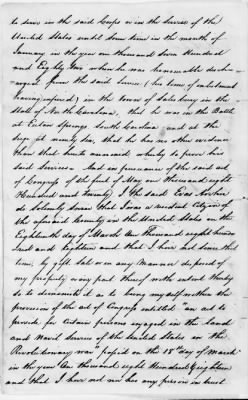 to serve in the said Corps or in the Service of the
United States until some time in the month of
January in the year one thousand Seven Hundred
and Eighty two when he was honourable dischar-
-ged from the said Service (his time of enlistment
having expired) in the Town of Salisbury in the
State of North Carolina, that he was in the Battle
at Eutaw Springs South Carolina and at the
Siege at ninety Six, that he has no other evidence
than that hereto annexed whereby to prove his
said Services. And in pursuance of the said act
of Congress of the first of May one thousand eight
Hundred and Twenty, I the said
do Solemnly Swear that I was a resident Citizen of
the aforesaid County in the United States on the
Eighteenth day of March One Thousand eight hundred
and Eighteen and that I have not Since that
time, by gift Sale or in any Manner disposed of
my property or any part thereof with intent thereby
so to diminish it as to bring myself within the
provision of the act of Congress entitled "an act to
provide for certain persons engaged in the land
and Naval Service of the United States in the
Revolutionary War" passed on the 18th day of March
in the year One thousand eight Hundred & eighteen
and that I have not nor has any person in trust